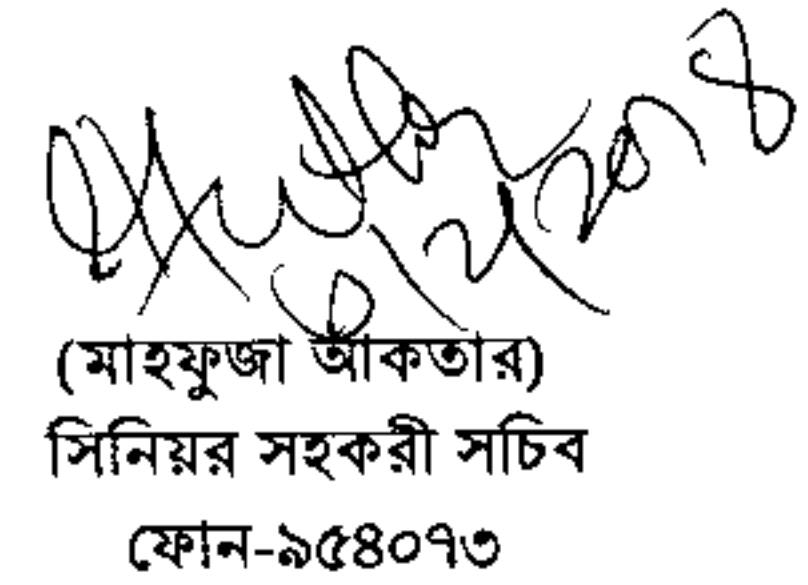 ৬/২/২০১৪
(মাহফুজা আকতার)
সিনিয়র সহকরী সচিব
ফোন-৯৫৪০৭৩